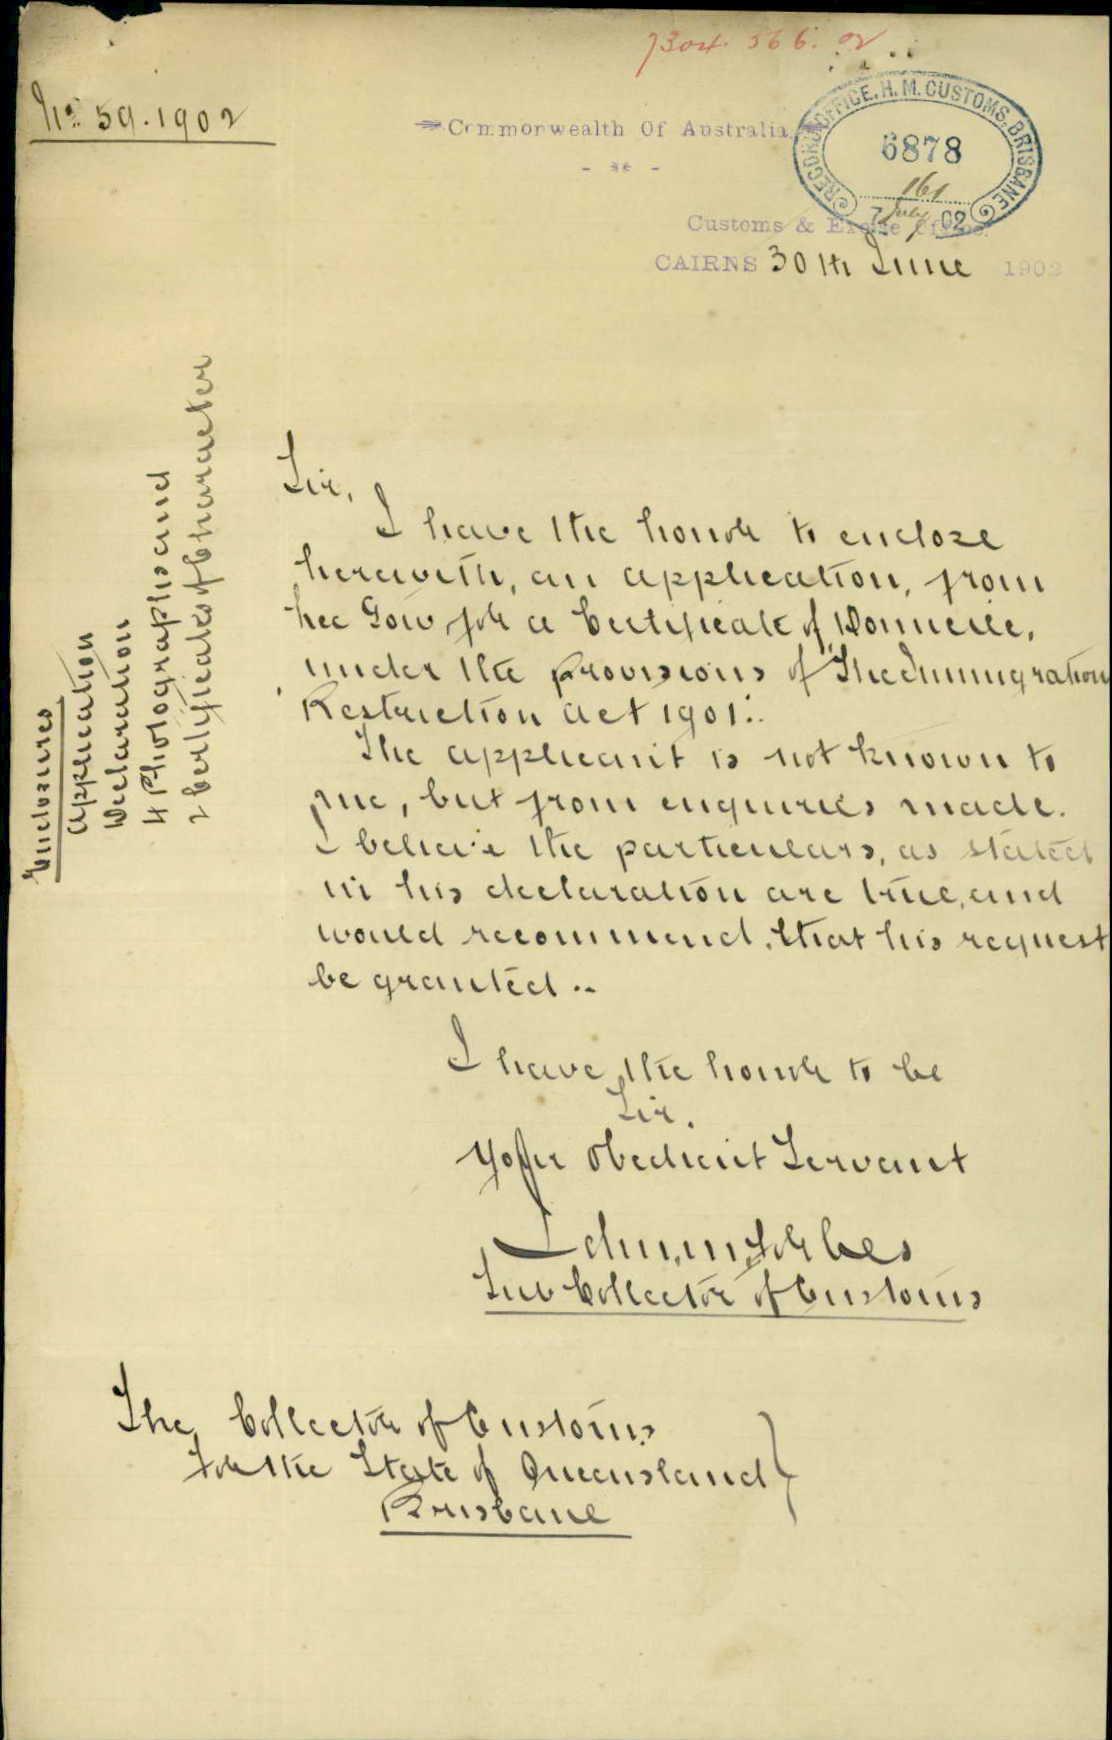 No 59.1902
Commonwealth Of Australia.
- ** -
RECORD OFFICE. H. M. CUSTOMS, BRISBANE
6878
161
7 July 02
Customs & Excise Office.
CAIRNS 30th June 1902
Enclosures
Application
Declaration
4 Photographs and
2 Certificates of Character
Sir,
I have the honor to enclose
herewith, an application, from
Lee Gow for a Certificate of Domicile,
under the provisions of "The Immigration
Restriction Act 1901".
The applicant is not known to
me, but from enquiries made.
I believe the particulars, as stated
in his declaration are true, and
would recommend, that his request
be granted ..
I have the honor to be
Sir.
Your Obedient Servant
Forbes
Sub Collector of Customs
The Collector of Customs
For the State of Queensland
Brisbane